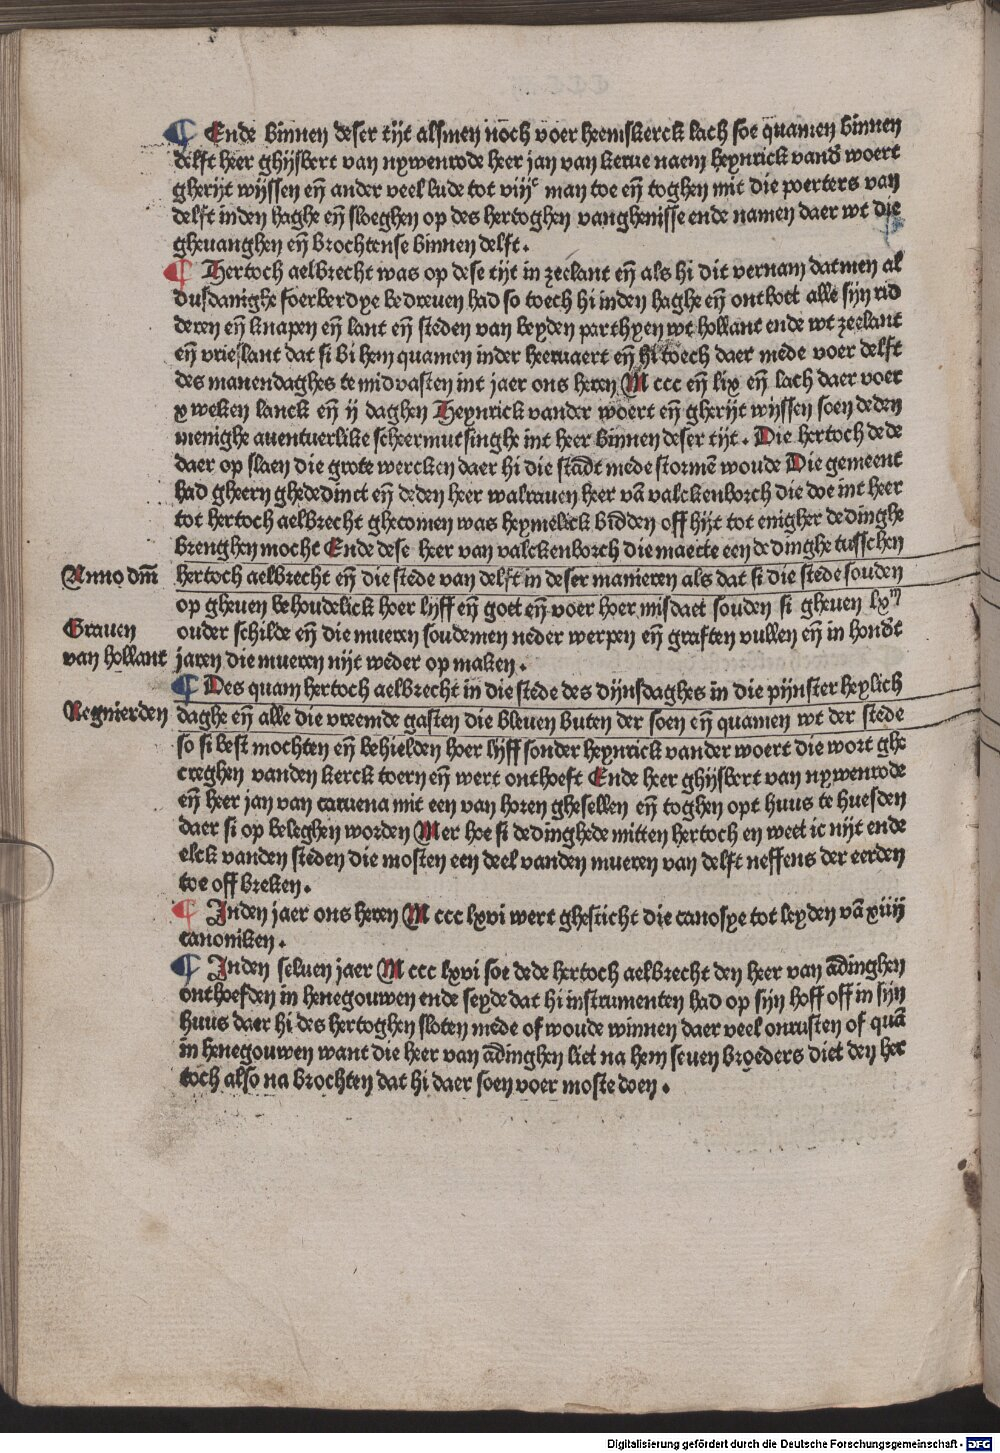 ¶ Ende binnen deser tijt alsmen noch voer heemskerck lach soe quamen binnen
delft heer ghijsbert van nywenrode heer jan van kerue naem heynrick vand̄ woert
gherijt wijssen eñ ander veel lude tot viijᶜ man toe eñ toghen mit die poerters van
delft inden haghe eñ sloeghen op des hertoghen vanghenisse ende namen daer wt die
gheuanghen eñ brochtense binnen delft.
¶ Hertoch aelbrecht was op dese tijt in zeelant eñ als hi dit vernam datmen al
dusdanighe foerberdye bedreuen had so toech hi inden haghe eñ onthoet alle sijn rid
deren eñ knapen eñ lant eñ steden van beyden parthyen wt hollant ende wt zeelant
eñ vrieslant dat si bi hem quamen inder heeruaert eñ hi toech daer mede voer delft
des manendaghes te midvasten int jaer ons heren M ccc eñ lix eñ lach daer voer
x weken lanck eñ ij daghen Heynrick vander woert eñ gherijt wijssen soen deden
menighe auentuerlike scheermutsinghe int heer binnen deser tijt. Die hertoch dede
daer op slaen die grote wercken daer hi die stadt mede stormē woude Die gemeent
had gheern ghededinct eñ deden heer walrauen heer vā valckenborch die doe int heer
tot hertoch aelbrecht ghecomen was heymelick bidden off hijt tot enigher dedinghe
brenghen mocht Ende dese heer van valckenborch die maecte een dedinghe tusschen
Anno dm̄
hertoch aelbrecht eñ die stede van delft in deser manieren als dat si die stede souden
op gheuen behoudelick hoer lijff eñ goet eñ voer hoer misdaet souden si gheuen lxᵐ
Grauen
ouder schilde eñ die mueren soudemen neder werpen eñ graften vullen eñ in hondt
van hollant
jaren die mueren nijt weder op maken.
¶ Des quam hertoch aelbrecht in die stede des dijnsdaghes in die pijnster heylich
Regnierden
daghe eñ alle die vreemde gasten die bleuen buten der soen eñ quamen wt der stede
so si best mochten eñ behielden hoer lijff sonder heynrick vander woert die wort ghe
creghen vanden kerck toern eñ wert onthoeft Ende heer ghijsbert van nywenrode
eñ heer jan van caruena mit een van horen ghesellen eñ toghen opt huus te huesden
daer si op beleghen worden Mer hoe si dedinghede mitten hertoch en weet ic nijt ende
elck vanden steden die mosten een deel vanden mueren van delft neffens der eerden
toe off breken.
¶ Inden jaer ons heren M ccc lxvi wert ghesticht die canosye tot leyden vā xiiij
canoniken.
¶ Inden seluen jaer M ccc lxvi soe dede hertoch aelbrecht den heer van ādinghen
onthoefden in henegouwen ende seyde dat hi instrumenten had op sijn hoff off in sijn
huus daer hi des hertoghen sloten mede of woude winnen daer veel onrusten of quā
in henegouwen want die heer van ādinghen liet na hem seuen broeders diet den her
toch also na brochten dat hi daer soen voer moste doen.
Digitalisierung gefördert durch die Deutsche Forschungsgemeinschaft - DFG